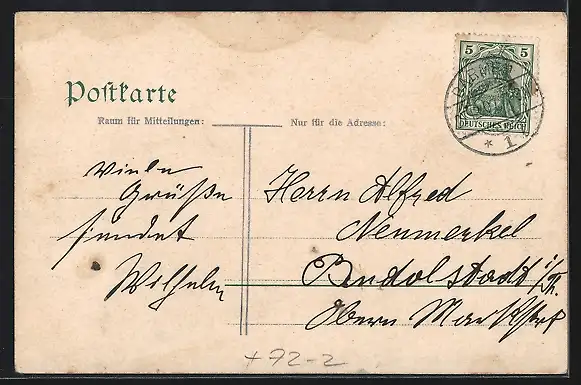 Postkarte
Raum für Mitteilungen:
Nur für die Adresse:
5 5
DEUTSCHES REICH
BARMEN
* 1
Viele
Grüße
sendet
Wilhelm
Herrn Alfred
Neumerkel
Rudolstadt i/Th.
Obern Marktstr
+72-2